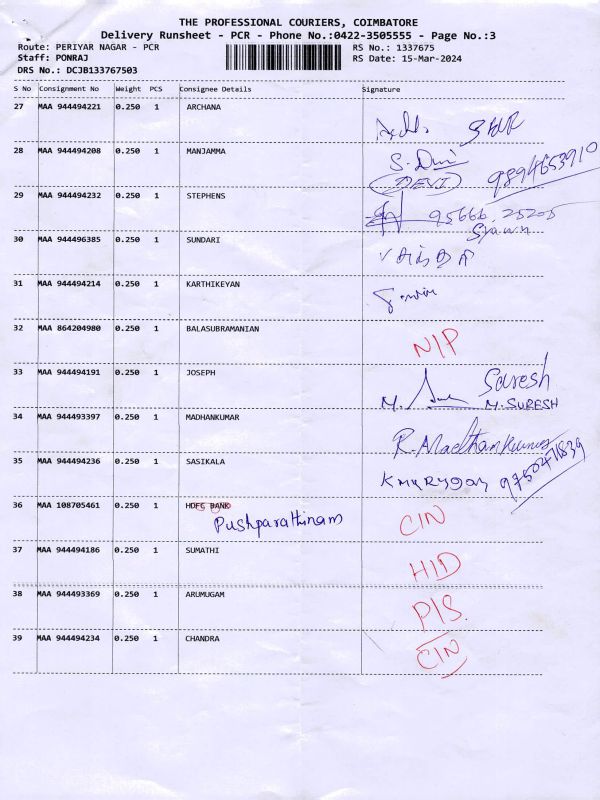 THE PROFESSIONAL COURIERS, COIMBATORE
Delivery Runsheet - PCR - Phone No.:0422-3505555 - Page No.:3
Route: PERIYAR NAGAR - PCR RS No.: 1337675
Staff: PONRAJ RS Date: 15-Mar-2024
DRS No.: DCJB133767503
S No Consignment No Weight PCS Consignee Details Signature
27 MAA 944494221 0.250 1 ARCHANA
28 MAA 944494208 0.250 1 MANJAMMA S. Devi
(DEVI) 9894653910
29 MAA 944494232 0.250 1 STEPHENS
95666.25205
30 MAA 944496385 0.250 1 SUNDARI
31 MAA 944494214 0.250 1 KARTHIKEYAN
32 MAA 864204980 0.250 1 BALASUBRAMANIAN N/P
33 MAA 944494191 0.250 1 JOSEPH Saresh
M. M. SURESH
34 MAA 944493397 0.250 1 MADHANKUMAR R. Madhankumar
35 MAA 944494236 0.250 1 SASIKALA K MURUGAN 9750471839
36 MAA 108705461 0.250 1 HDFC BANK
Pushparathinam CIN
37 MAA 944494186 0.250 1 SUMATHI HID
38 MAA 944493369 0.250 1 ARUMUGAM P/S.
39 MAA 944494234 0.250 1 CHANDRA CIN